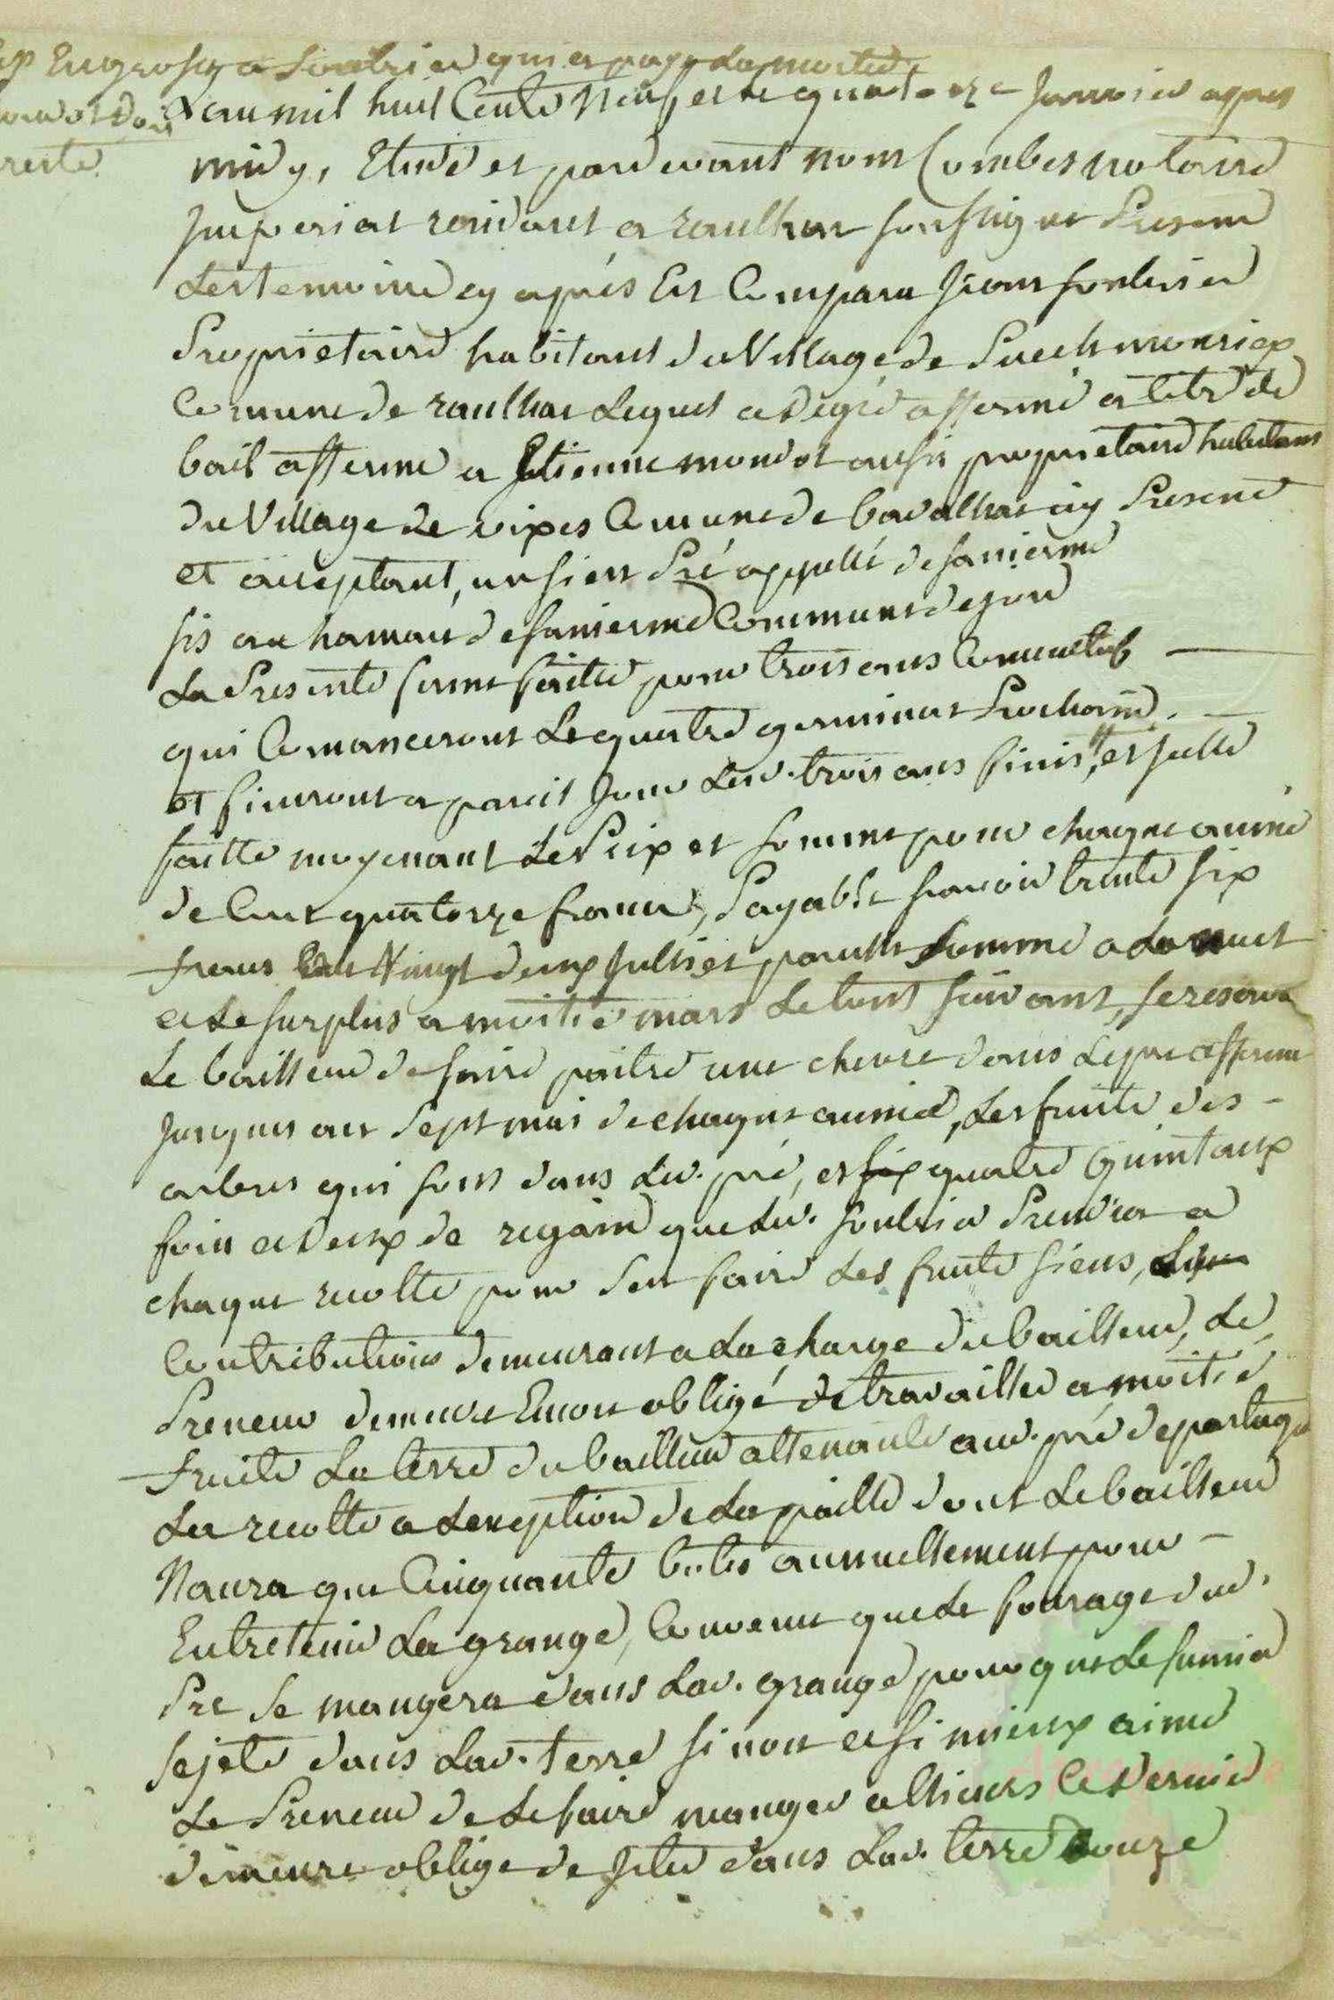 Exp Engrossé a Soubrier qui a payé la moitié
mondot doit
reste
L'an mil huit Cents Neuf et le quatorze Janvier apres
midy, Etude et pardevant nous Combes notaire
Imperial residant a raulhac soussigné Presens
Les temoins cy aprés Est Comparu Jean soubrier
Proprietaire habitant du Village de Puechmouriex
Comune de raulhac Lequel a degré affermé a titre de
bail afferme a Etienne mondot aussi proprietaire habitant
du Village de vixes Comune de badalhac icy Present
et acceptant, un sien Pré appellé de
sis au hamau de Commune de
La Presente ferme faitte pour trois ans Consecutifs
qui Comanceront Le quatre germinal Prochain.
et finiront a pareil Jour Lesd. trois ans finis, et Icelle
faitte moyenant Le Prix et somme pour chaque année
de Cent quatorze francs, Payable savoir trente six
francs Le Vingt deux Juillet pareille somme a
et Le surplus a moitié mars Le tout suivant, se reserve
Le bailleur de faire paitre une chevre dans Le pré afferme
Jusques au sept mai de chaque année, Les fruits des
arbres qui sont dans Led. pré, et six quatre Quintaux
foin et deux de regain que Led. soubrier Prendra a
chaque recolte pour sen faire des fruits siens, Les
Contributions demeurant a La charge du bailleur, Le
Preneur demeure Encore obligé de travailler a moitié
fruits La terre du bailleur attenante aud. pré de partager
La recolte a Lexeption de La paille dont Le bailleur
Naura que Cinquante bottes annuellement pour
Entretenir La grange, Convenu que Le fourage dud.
Pré se mangera dans Lad. grange pour que Le fumier
se jete dans Lad. terre si non et si mieux aime
Le Preneur de Le faire manger allieurs Ce dernier
demeure oblige de Jeter dans Lad. terre douze